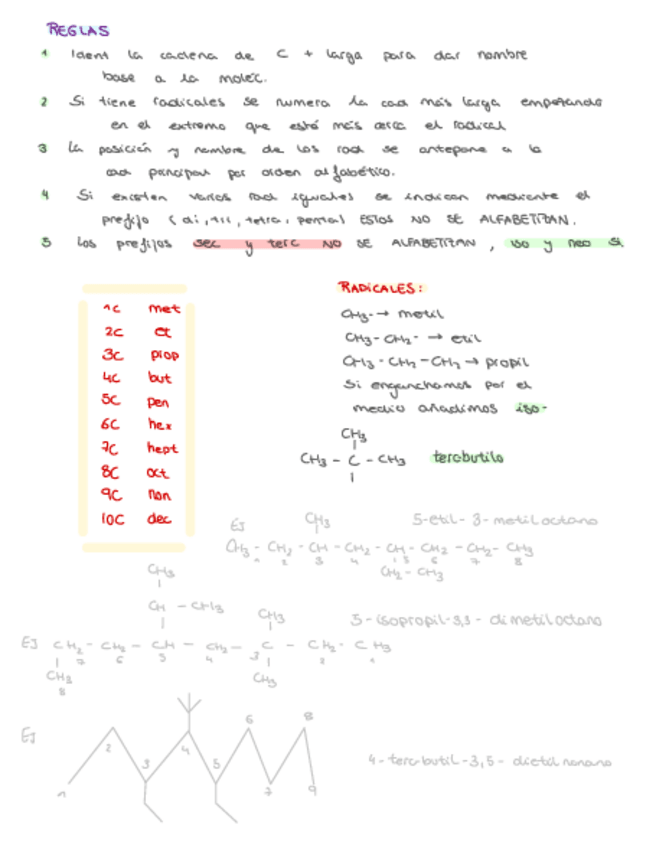 REGLAS
1 Ident la cadena de C + larga para dar nombre
base a la moléc.
2 Si tiene radicales se numera la cad más larga empezando
en el extremo que está más cerca el radical
3 La posición y nombre de los rad se antepone a la
cad principal por orden alfabético.
4 Si existen varios rad iguales se indican mediante el
prefijo (di, tri, tetra, penta) ESTOS NO SE ALFABETIZAN.
5 Los prefijos sec y terc NO SE ALFABETIZAN, iso y neo SI.
1C met
2C et
3C prop
4C but
5C pen
6C hex
7C hept
8C oct
9C non
10C dec
RADICALES:
CH3· → metil
CH3 - CH2· → etil
CH3 - CH2 - CH2 → propil
Si enganchamos por el
medio añadimos iso-
CH3
CH3 - C - CH3 tercbutilo
Ej CH3 5-etil-3-metiloctano
CH3 - CH2 - CH - CH2 - CH - CH2 - CH2 - CH3
1 2 3 4 5 6 7 8
CH2 - CH3
CH3
CH - CH3
CH3 5-isopropil-3,3-dimetiloctano
Ej CH2 - CH2 - CH - CH2 - C - CH2 - CH3
7 6 5 4 3 2 1
CH3 CH3
8
Ej 1 2 3 4 5 6 7 8 9
4-terc-butil-3,5-dietilnonano